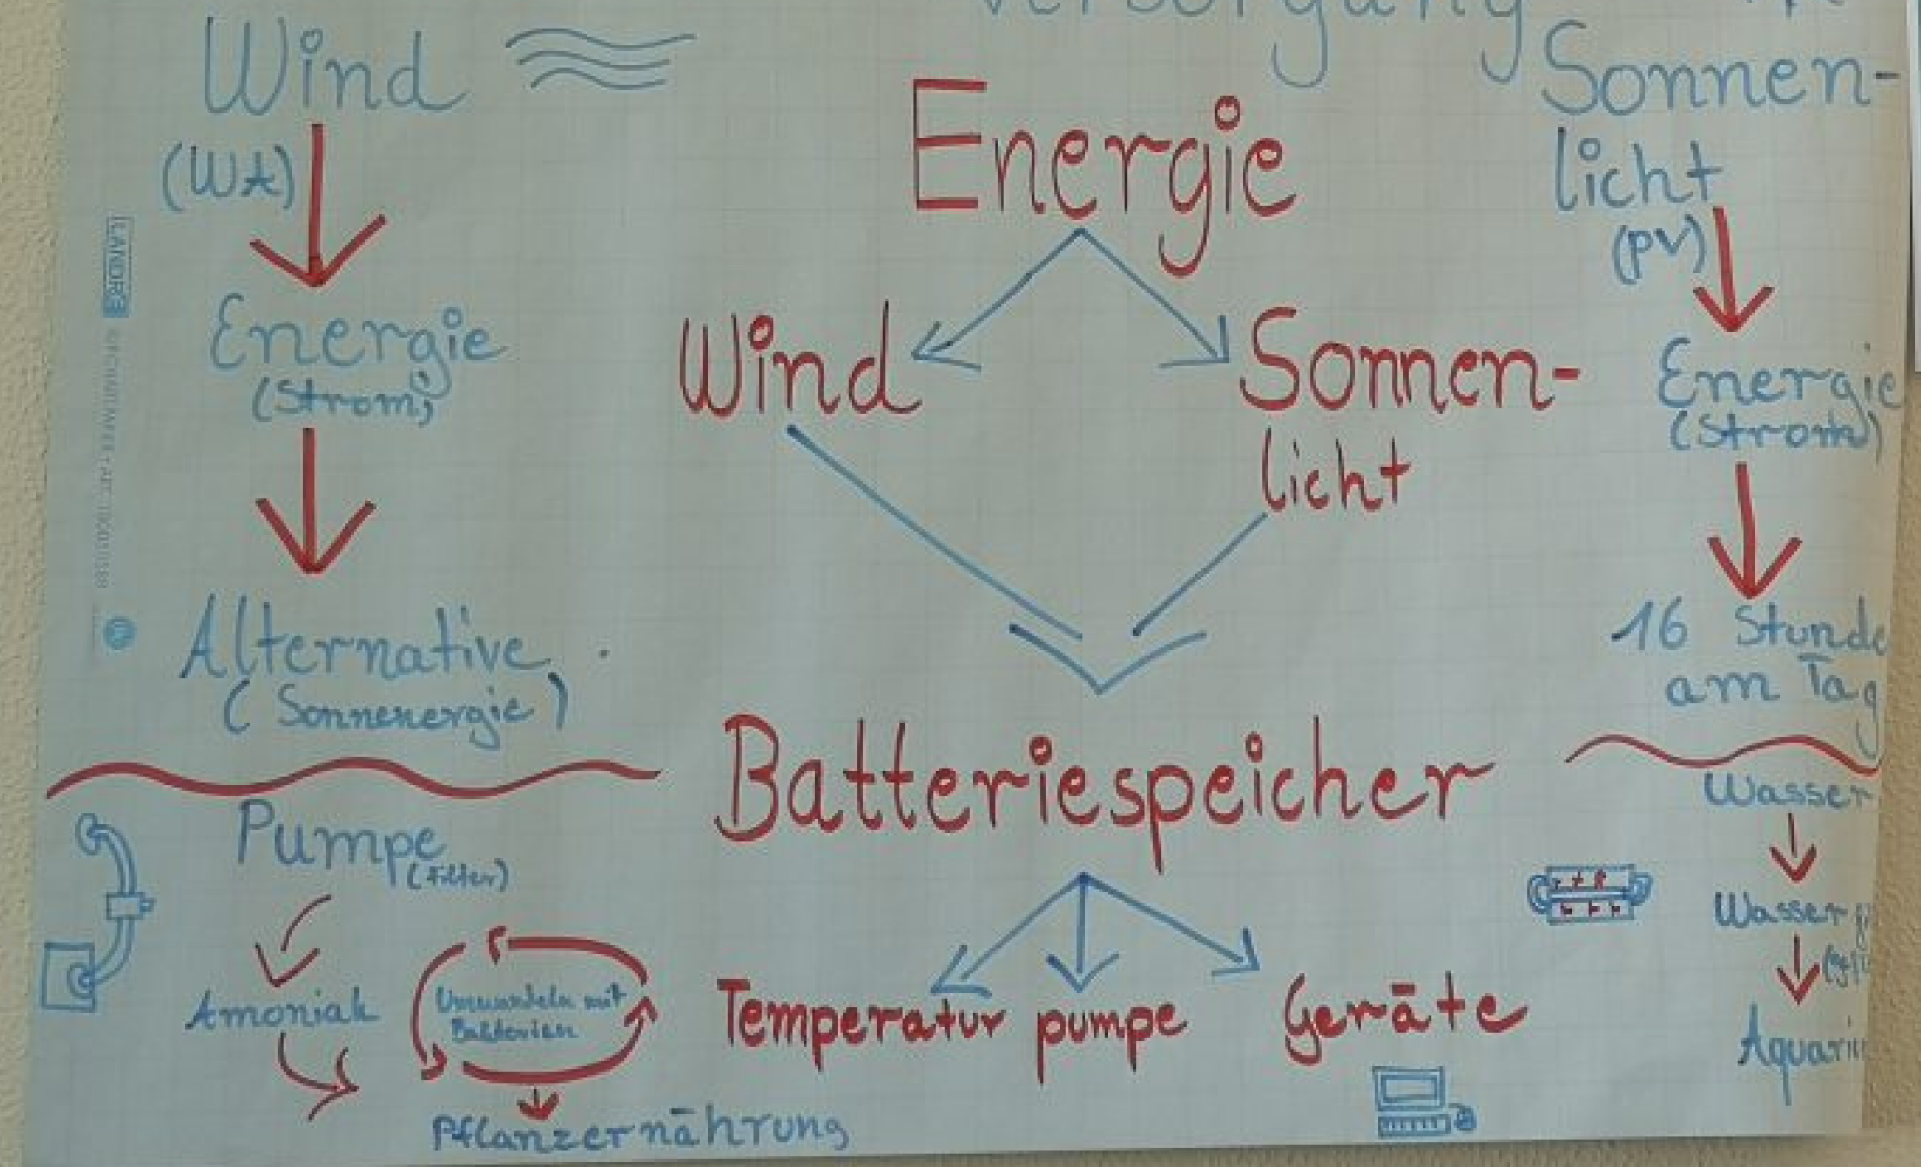 versorgung
Wind
(WA)
Energie
(Strom)
Alternative
(Sonnenergie)
Pumpe
(Filter)
Amoniak
Umwandeln mit
Bakterien
Pflanzernährung
Energie
Wind
Sonnen-
licht
Batteriespeicher
Temperatur pumpe Geräte
Sonnen-
licht
(PV)
Energie
(Strom)
16 Stunde
am Tag
Wasser
Wasser
Aquari
LANDRÉ